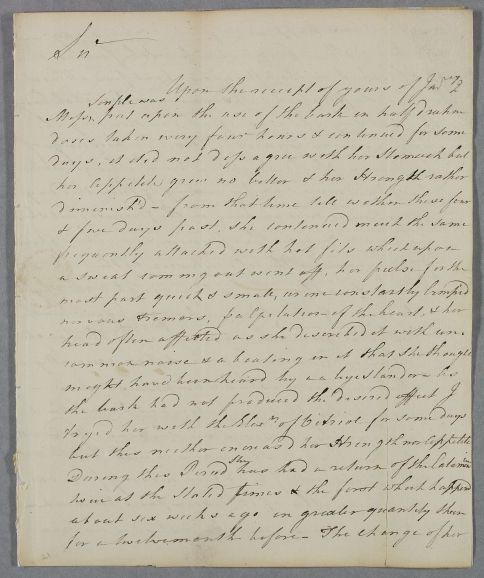 Sir
Upon the receipt of yours of Jan
Semple was
Miss put upon the use of the bark in half drahm
doses taken every four hours & continued for some
days, it did not dissagree with her Stomach but
her appetite grew no better & her Strength rather
diminish'd - from that time till within these four
& five days past, she continued much the same
frequently attacked with hot fits which upon
a sweat comming out went off, her pulse for the
most part quick & small, urine constantly limped
nervous tremors, palpitation of the heart, & her
head often affected as she described it with un-
common noise & a beating in it that she thought
might have been heard by a byestander - As
the bark had not produced the desired effect I
tryed her with the Elixr of Vitriol for some days
but this neither increas'd her Strength nor appetite
During this Period she has had a return of the Catamenia
twice at the stated times & the first which happend
about six weeks ago in greater quantity than
for a twelvemonth before - The change of her